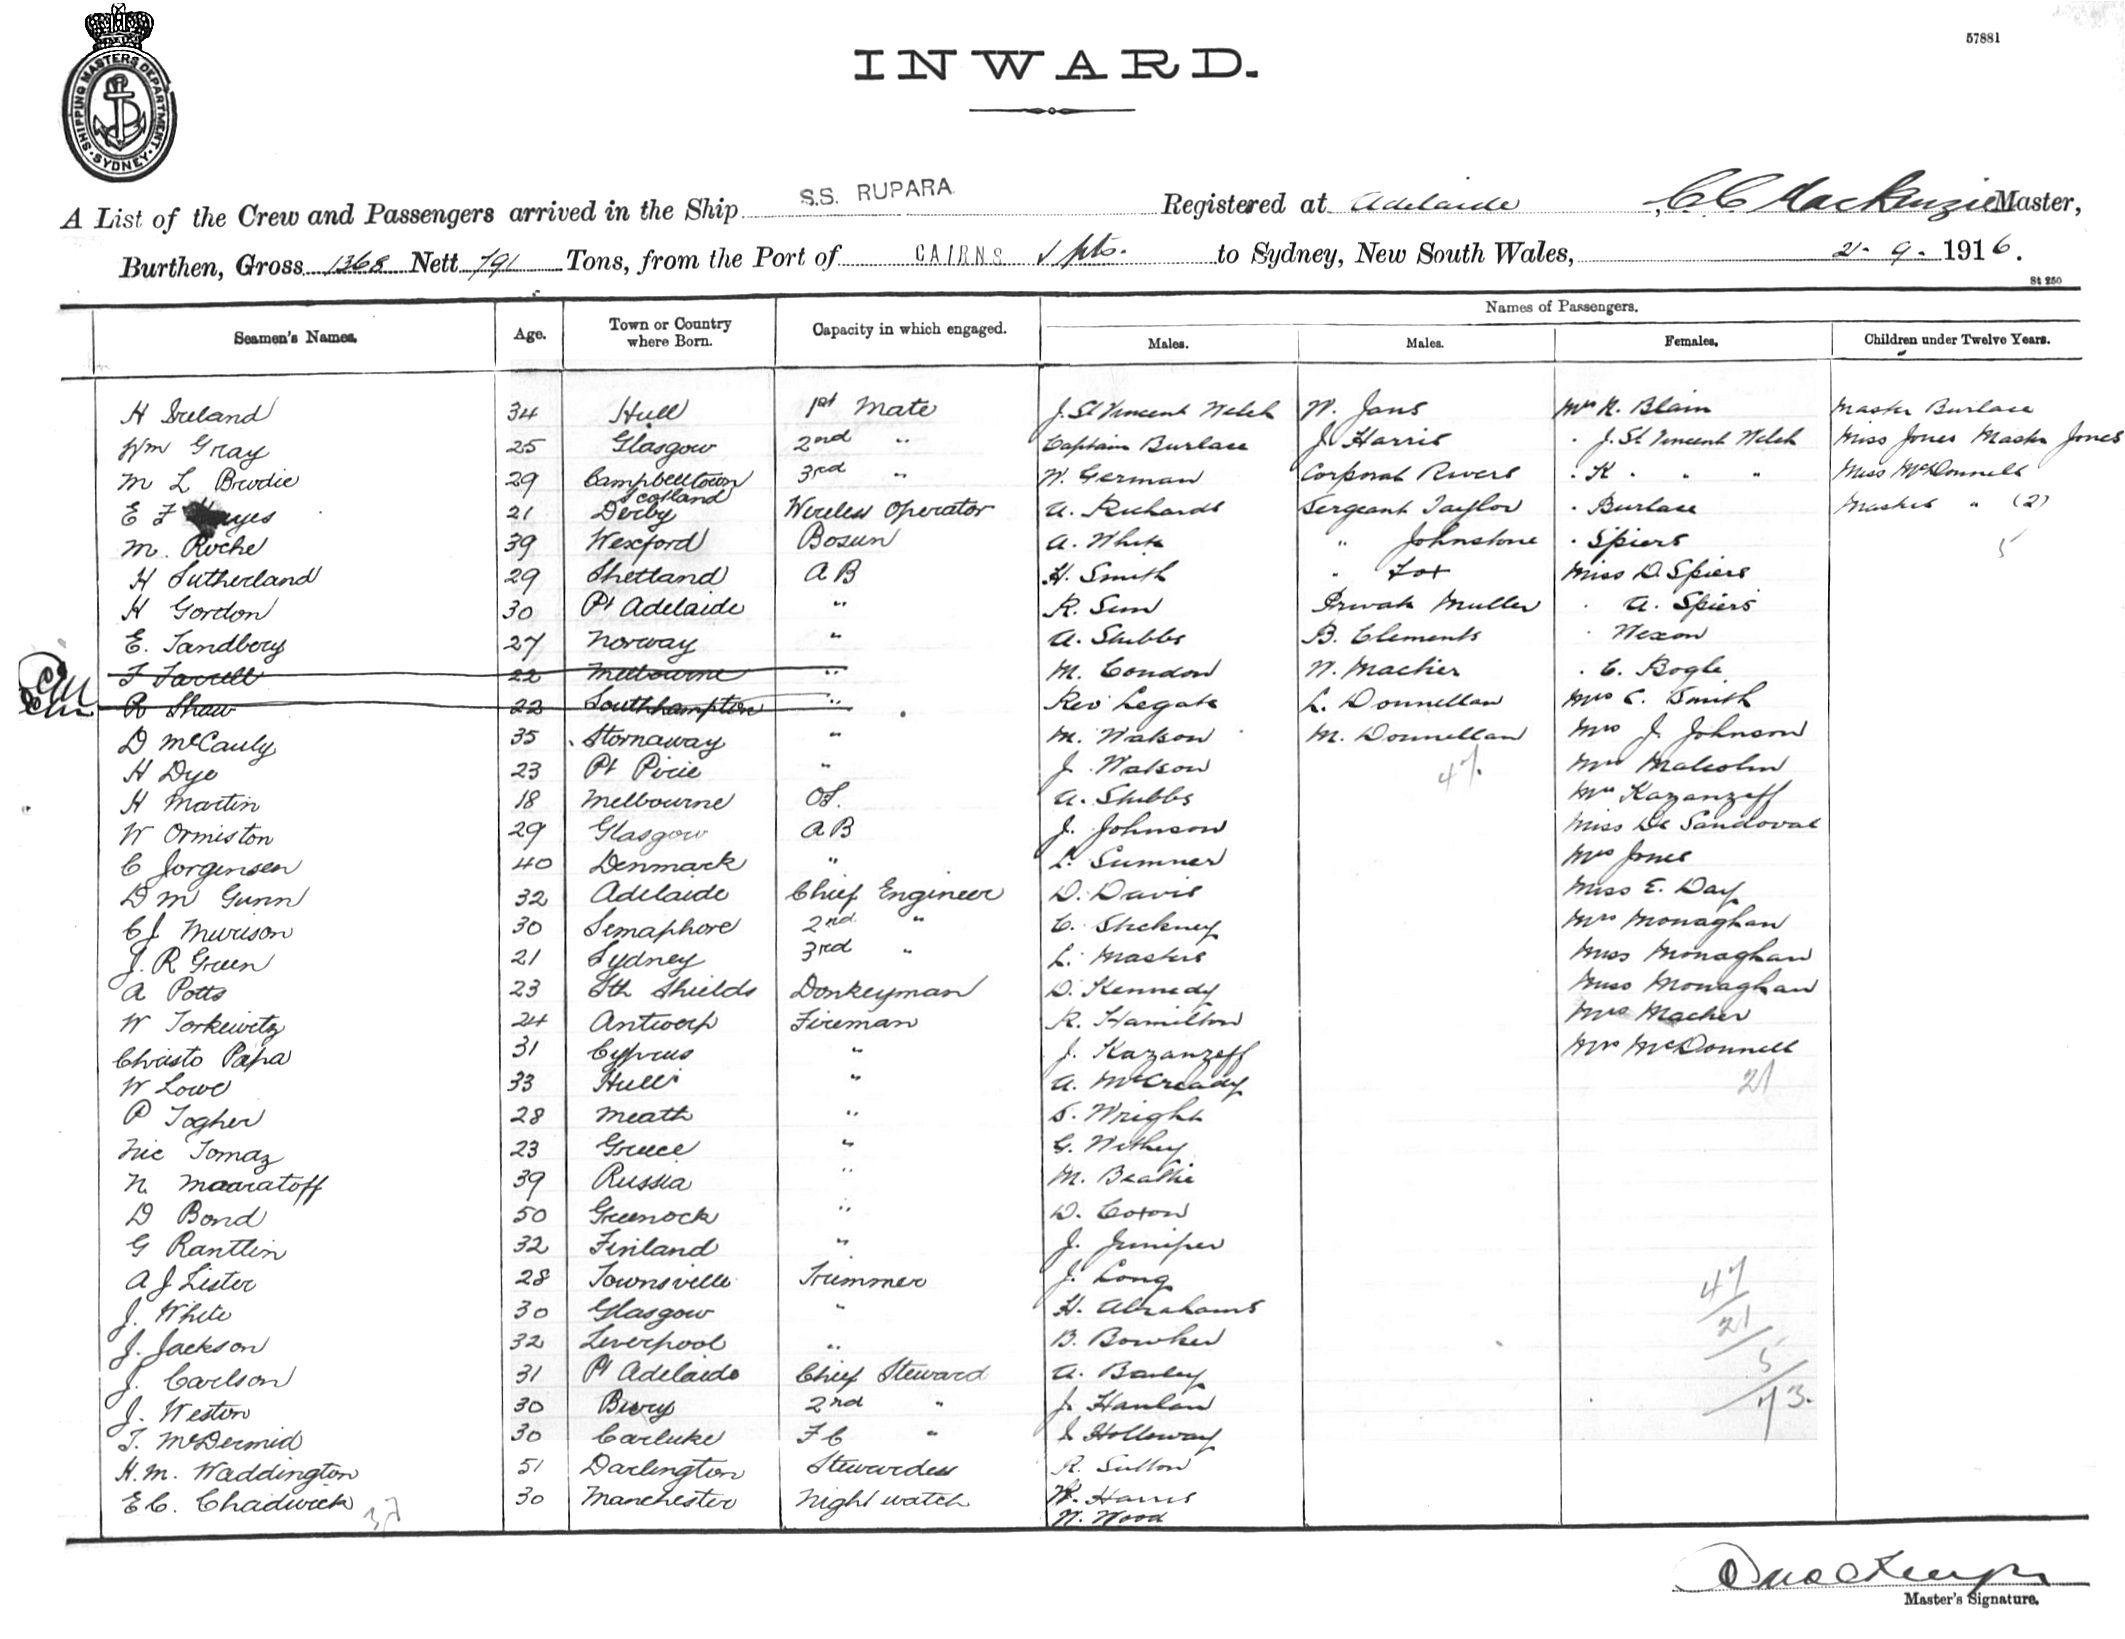 57881
SHIPPING MASTERS DEPARTMENT. SYDNEY
INWARD.
A List of the Crew and Passengers arrived in the Ship S.S. RUPARA Registered at Adelaide C.C. MacKenzie Master,
Burthen, Gross 1368 Nett 791 Tons, from the Port of CAIRNS & pts. to Sydney, New South Wales, 2-9-1916.
St 250
Names of Passengers.
Seamen's Names. Age. Town or Country where Born. Capacity in which engaged. Males. Males. Females. Children under Twelve Years.
H Ireland 34 Hull 1st Mate J. St Vincent Welch W. Jans Mrs R. Blain Master Burlace
Wm Gray 25 Glasgow 2nd " Captain Burlace J. Harris " J. St Vincent Welch Miss Jones Master Jones
M L Brodie 29 Campbelltown Scotland 3rd " W. German Corporal Rivers " K " " Miss McDonnell
E F Hayes 21 Derby Wireless Operator A. Richards Sergeant Taylor " Burlace Master " (2)
M. Roche 39 Wexford Bosun A. White " Johnstone " Spiers 5
H Sutherland 29 Shetland A B H. Smith " Fox Miss D. Spiers
H Gordon 30 Pt Adelaide " R. Sim Private Muller " A. Spiers
E. Sandberg 27 Norway " A. Stubbs B. Clements " Nixon
F Farrell 22 Melbourne " M. Condon W. Machier " C. Bogle
R Shaw 22 Southhampton " Rev Legate L. Donnellan Mrs C. Smith
D McCauly 35 Stornaway " M. Watson M. Donnellan Mrs J. Johnson
H Dye 23 Pt Pirie " J. Watson 47 Mrs Malcolm
H Martin 18 Melbourne OS. A. Stubbs Mrs Kazanzeff
W Ormiston 29 Glasgow A B J. Johnson Miss De Sandoval
C Jorgensen 40 Denmark " L. Sumner Mrs Jones
D M Gunn 32 Adelaide Chief Engineer D. Davis Miss E. Day
C J Murison 30 Semaphore 2nd " C. Stickney Mrs Monaghan
J. R Green 21 Sydney 3rd " L. Masters Miss Monaghan
A Potts 23 Sth Shields Donkeyman D. Kennedy Miss Monaghan
W Torkewitz 24 Antwerp Fireman R. Hamilton Mrs Macher
Christo Papa 31 Cyprus " J. Kazanzeff Mrs McDonnell
W Lowe 33 Hull " A. McCready 21
P Togher 28 Meath " S. Wright
Nic Tomaz 23 Greece " G. Withey
N. Maaratoff 39 Russia " M. Beattie
D Bond 50 Greenock " D. Coxon
G Rantlin 32 Finland " J. Juniper
A J Lister 28 Townsville Trimmer J. Long 47
J. White 30 Glasgow " H. Abrahams 21
J. Jackson 32 Liverpool " B. Bowker 5
J. Carlson 31 Pt Adelaide Chief Steward A. Bailey 73.
J. Weston 30 Bury 2nd " J. Hanlan
T. McDermid 30 Carluke F C " J Holloway
H. M. Waddington 51 Darlington Stewardess R. Sutton
E C. Chadwick 30 Manchester Night watch W. Harris
W. Wood
Master's Signature.